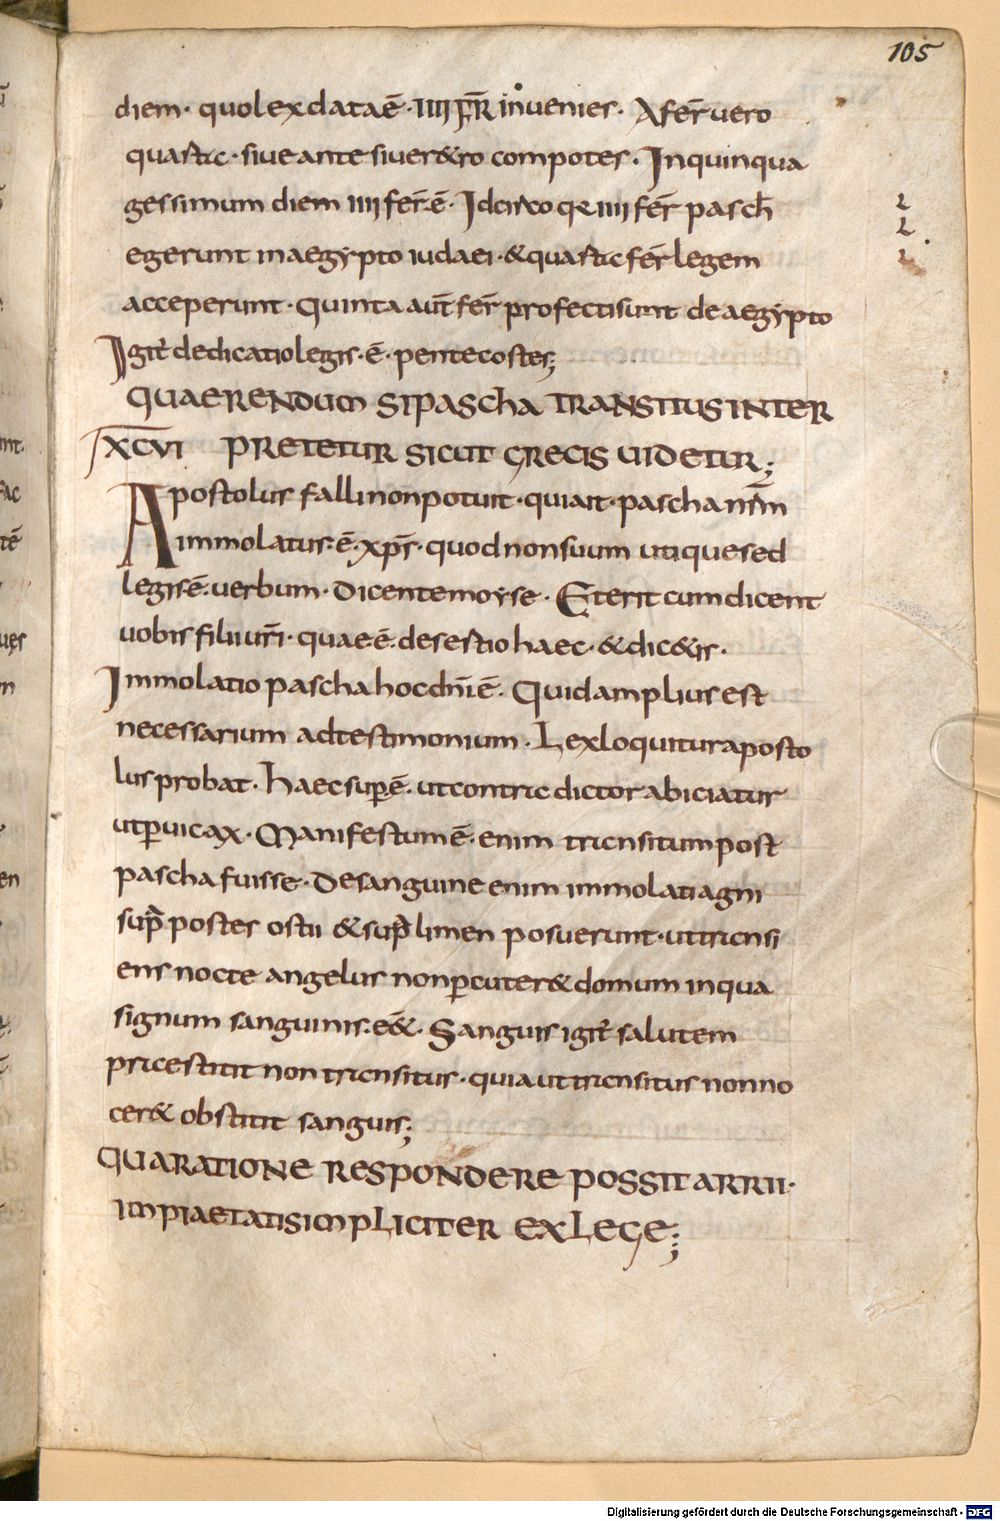 105
diem · quo lex data ē · IIII FR̄ inuenies · A fer̄ uero
quarta · siue ante siue retro compotes · In quinqua
gessimum diem IIII fer̄ ē · Idcirco qr IIII fer̄ pasch̄
egerunt in aegypto iudaei · & quarta fer̄ legem
acceperunt · Quinta aut̄ fer̄ profecti sunt de aegypto
Igit̄ dedicatio legis · ē · pentecostes;
QUAERENDUM SI PASCHA TRANSITUS INTER
XCVI PRETETUR SICUT GRECIS UIDETUR;
Apostolus falli non potuit · qui ait · pascha nr̄m
immolatus · ē · xp̄s · quod non suum utique sed
legis ē · uerbum · Dicente moyse · Et erit cum dicent
uobis filii ur̄i · quae ē · desestio haec · & dic&is ·
Immolatio pascha hoc dn̄i ē · Quid amplius est
necessarium ad testimonium · Lex loquitur aposto
lus probat · Haec sup̄ ē · ut contradictor abiciatur
ut puicax · Manifestum ē · enim transitum post
pascha fuisse · De sanguine enim immolati agni
sup̄ postes ostii & sup̄ limen posuerunt · ut transi
ens nocte angelus non pcuter& domum in qua
signum sanguinis · e& · Sanguis igit̄ salutem
praestitit non transitus · quia ut transitus non no
cer& obstitit sanguis;
QUA RATIONE RESPONDERE POSSIT ARRII ·
IMPIAETATI SIMPLICITER EX LEGE;
Digitalisierung gefördert durch die Deutsche Forschungsgemeinschaft - DFG